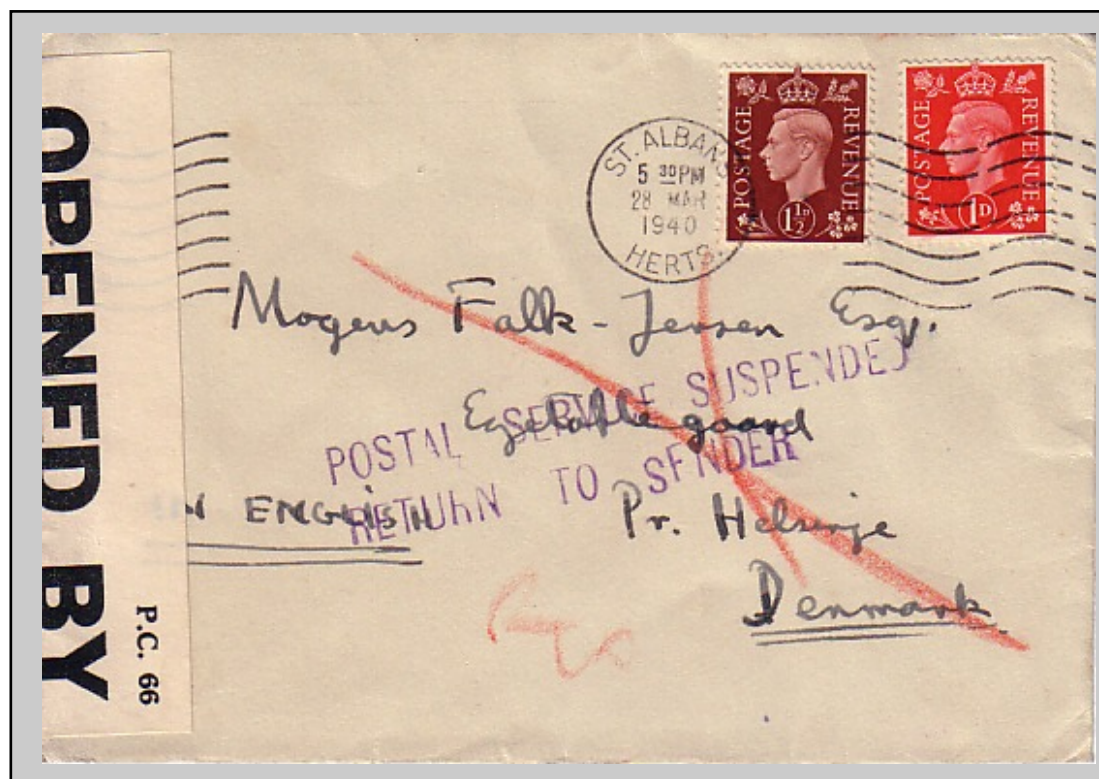 OPENED BY
P.C. 66
ST. ALBANS
5 30 PM
28 MAR
1940
HERTS.
POSTAGE REVENUE
1½D
POSTAGE REVENUE
1D
Mogens Falk-Jensen Esq.
POSTAL SERVICE SUSPENDED
RETURN TO SENDER
IN ENGLISH
Pr. Helsinge
Denmark